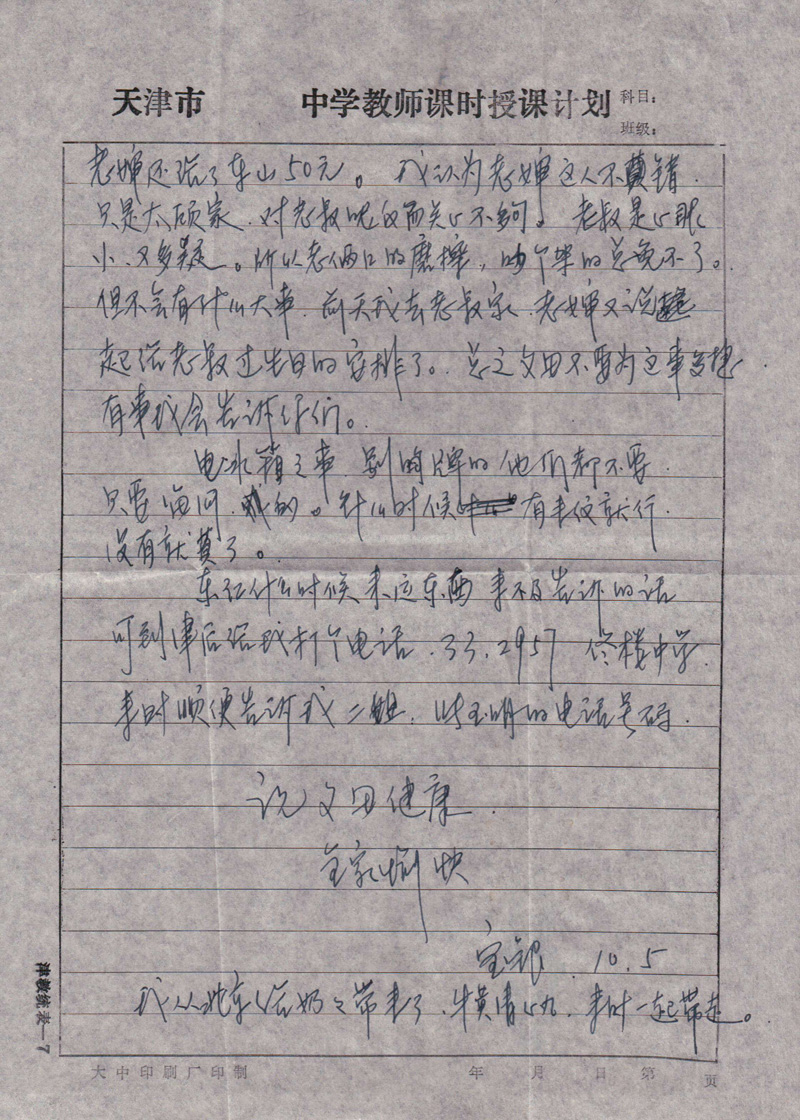 天津市 中学教师课时授课计划 科目：
班级：
老婶还给了东山50元。我认为老婶这人不错.
只是太顾家.对老叔吃的而关心不够。老叔是心眼
小、又多疑。所以老俩口的磨擦，吵个架的总免不了。
但不会有什么大事.前天我去老叔家.老婶又说
起给老叔过生日的安排了。总之 不要为这事多想
有事我会告诉你们。
电冰箱之事 别的牌的他们都不要.
只要 的。什么时候 有 就行.
没有就算了。
东红什么时候来运东西 来不及告诉的话
可到津后给我打个电话.33.2957 佟楼中学.
来时顺便告诉我二姐. 明的电话号码.
祝 健康.
全家愉快
宝银 10.5
我从北京给奶奶带来了.牛黄清心丸.来时一起带走。
津教统表—7
大中印刷厂印制 年 月 日 第 页